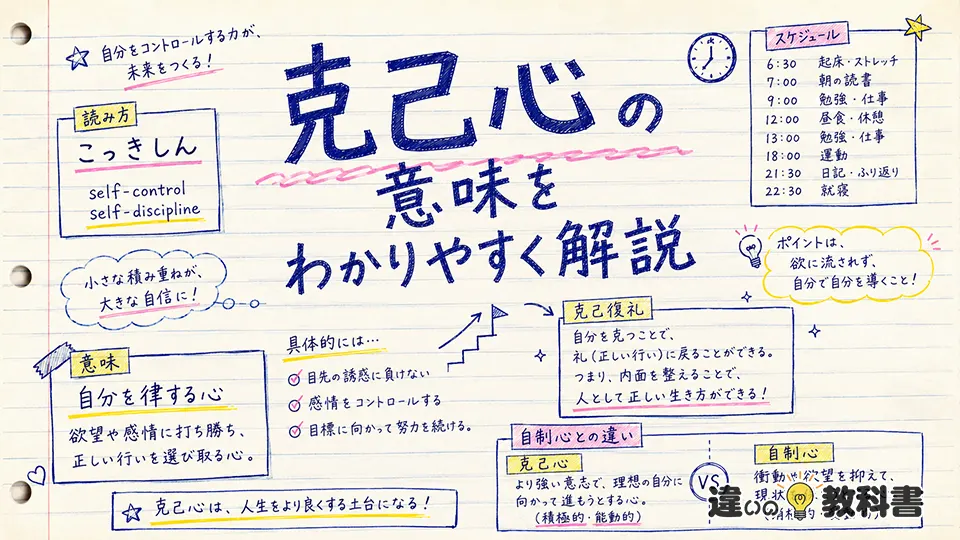 自分をコントロールする力が、
未来をつくる！
克己心の
意味を
わかりやすく解説
スケジュール
6:30 起床・ストレッチ
7:00 朝の読書
9:00 勉強・仕事
12:00 昼食・休憩
13:00 勉強・仕事
18:00 運動
21:30 日記・ふり返り
22:30 就寝
読み方
こっきしん
self-control
self-discipline
小さな積み重ねが、
大きな自信に！
ポイントは、
欲に流されず、
自分で自分を導くこと！
意味
自分を律する心
欲望や感情に打ち勝ち、
正しい行いを選び取る心。
具体的には…
目先の誘惑に負けない
感情をコントロールする
目標に向かって努力を続ける。
克己復礼
自分を克つことで、
礼（正しい行い）に戻ることができる。
つまり、内面を整えることで、
人として正しい生き方ができる！
自制心との違い
克己心
より強い意志で、理想の自分に
向かって進もうとする心。
（積極的・能動的）
VS
自制心
衝動や欲望を抑えて、
現状
克己心は、人生をより良くする土台になる！
違いの教科書